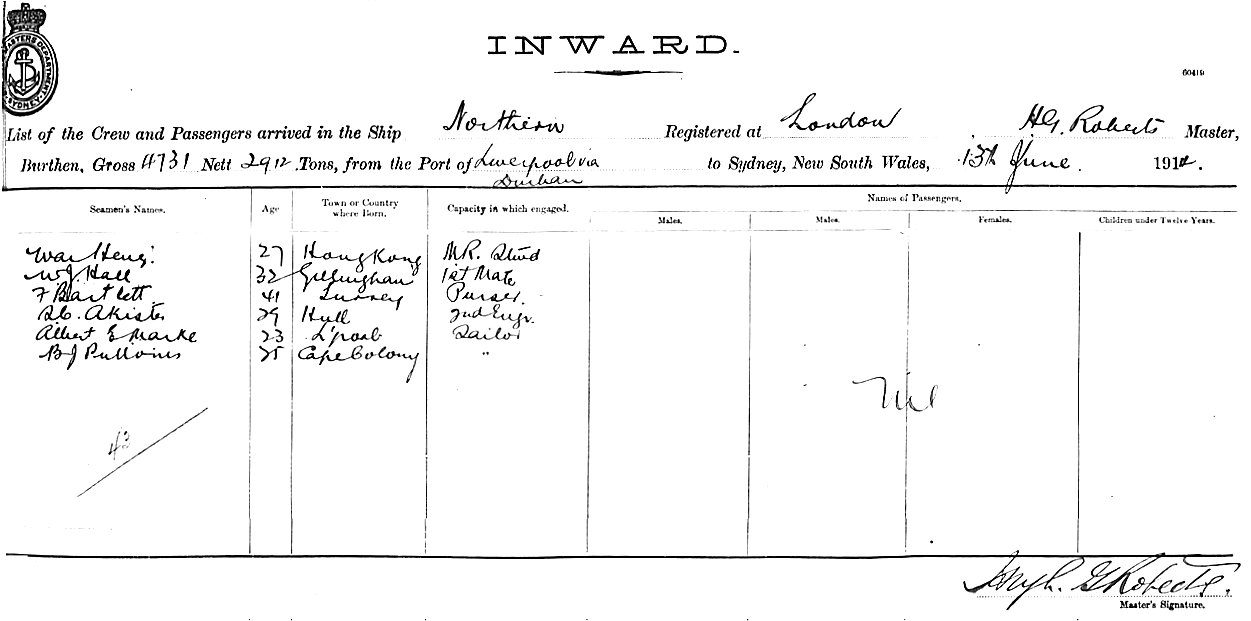 MASTERS DEPARTMENT SYDNEY
INWARD.
60419
List of the Crew and Passengers arrived in the Ship Northern Registered at London H.G. Roberts Master,
Burthen, Gross 4731 Nett 2912 Tons, from the Port of Liverpool via to Sydney, New South Wales, 13th June. 1914.
Durban
Seamen's Names. Age Town or Country where Born. Capacity in which engaged. Names of Passengers.
Males. Males. Females. Children under Twelve Years.
Wax Heng 27 Hong Kong MR. Stwd
W.J. Hall 32 Gillingham 1st Mate
F Bartlett 41 Surrey Purser.
Akister 29 Hull 2nd Engr.
Albert E Marke 23 L'pool Sailor
B J 25 Cape Colony "
Nil
43
G Roberts.
Master's Signature.